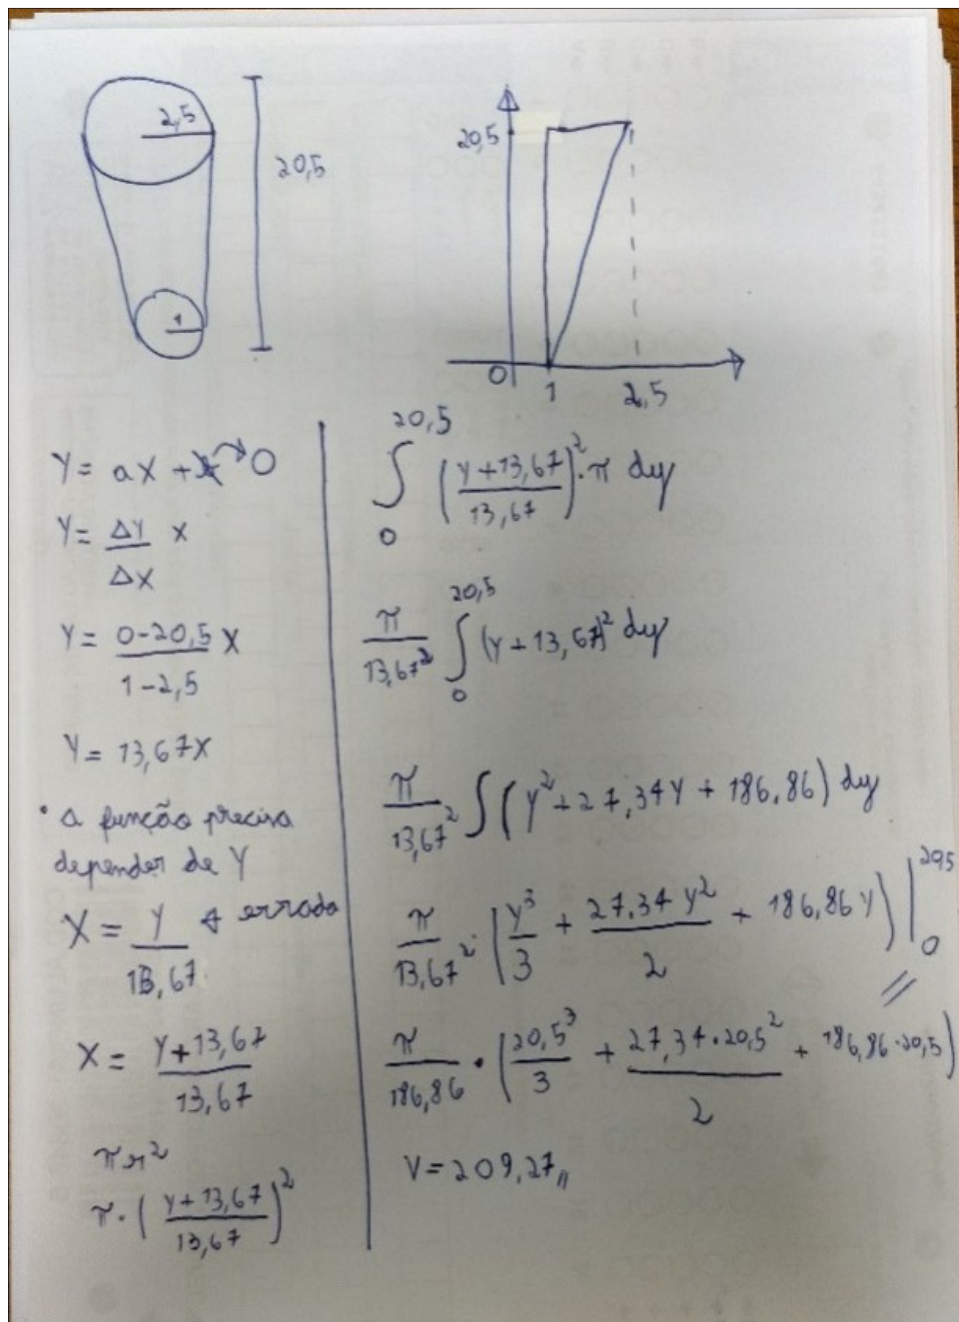 2,5
20,5
1
20,5
0
1
2,5
Y = aX + b → 0
Y = ΔY/ΔX X
Y = (0-20,5)/(1-2,5) X
Y = 13,67X
• a função precisa
depender de Y
X = Y/13,67 errado
X = (Y+13,67)/13,67
πr²
π·((Y+13,67)/13,67)²
∫₀^20,5 ((Y+13,67)/13,67)²·π dy
π/13,67² ∫₀^20,5 (Y+13,67)² dy
π/13,67² ∫(y²+27,34Y+186,86) dy
π/13,67²·(y³/3 + 27,34y²/2 + 186,86y)|₀^20,5
π/186,86·(20,5³/3 + 27,34·20,5²/2 + 186,86·20,5)
V = 209,27